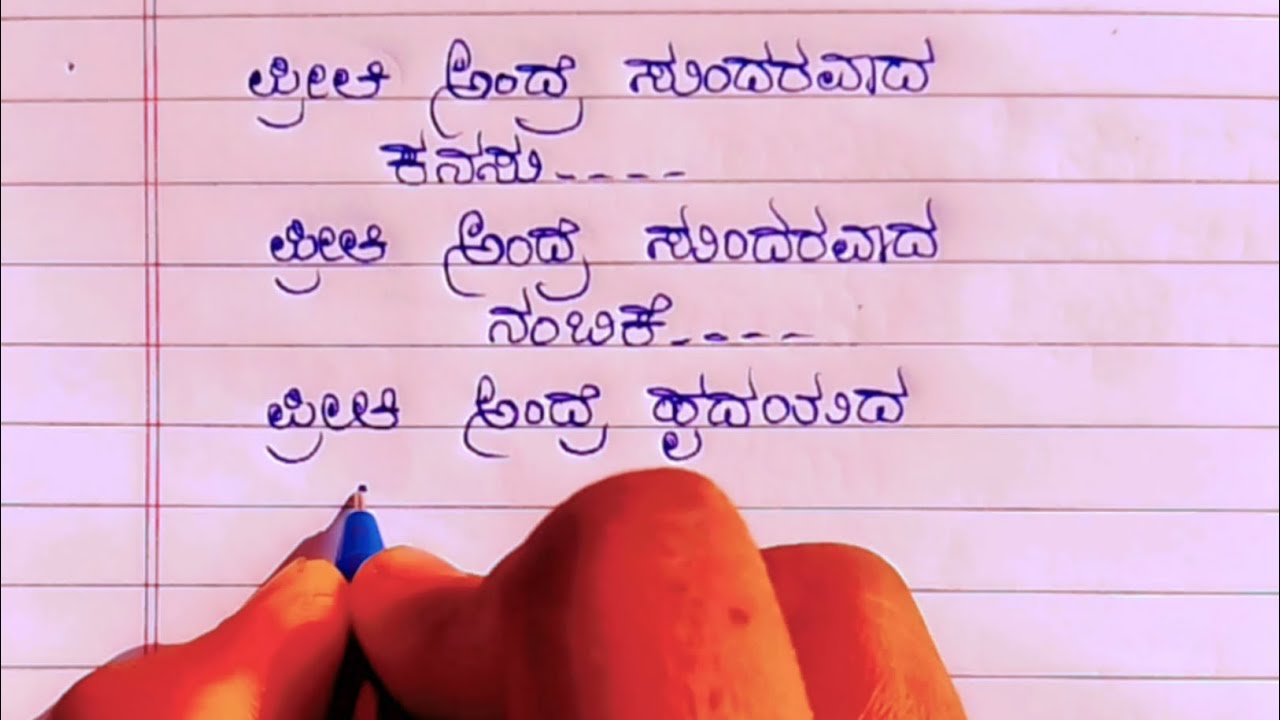 ಪ್ರೀತಿ ಅಂದ್ರೆ ಸುಂದರವಾದ
ಕನಸು----
ಪ್ರೀತಿ ಅಂದ್ರೆ ಸುಂದರವಾದ
ನಂಬಿಕೆ----
ಪ್ರೀತಿ ಅಂದ್ರೆ ಹೃದಯದ